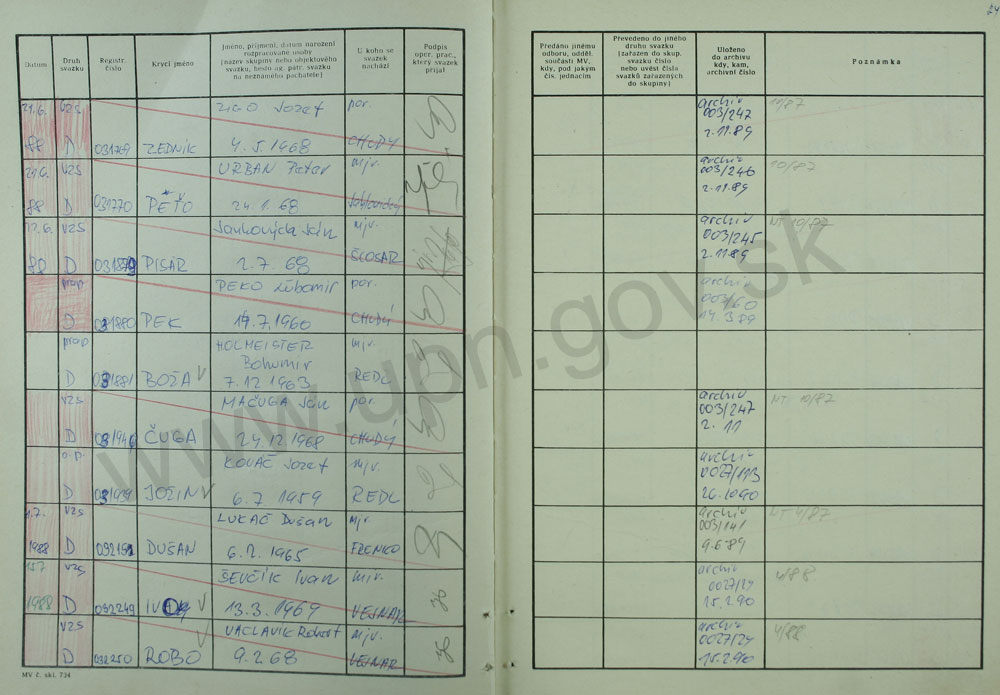 24
Datum
Druh
svazku
Registr.
číslo
Krycí jméno
Jméno, příjmení, datum narození
rozpracované osoby
(název skupiny nebo objektového
svazku, heslo ag. pátr. svazku
na neznámého pachatele)
U koho se
svazek
nachází
Podpis
oper. prac.,
který svazek
přijal
Předáno jinému
odboru, odděl.
součásti MV,
kdy, pod jakým
čís. jednacím
Převedeno do jiného
druhu svazku
(zařazen do skup.
svazku číslo
nebo uvést čísla
svazků zařazených
do skupiny)
Uloženo
do archivu
kdy, kam,
archivní číslo
Poznámka
21.6. VZS ŽIGO Jozef por.
88 D 031769 ZEDNÍK 4.5.1968 CHUDÝ
archiv
003/247
2.11.89
10/87
21.6. VZS URBAN Peter mjr.
88 D 031770 PEŤO 24.1.68
archiv
003/246
2.11.89
10/87
VZS Ján mjr.
D PISÁR 2.7.68 ŠČOSAR
archiv
003/245
2.11.89
NT 10/87
prap PEKO Ľubomír por.
D 031880 PEK 19.7.1960 CHUDÝ
archiv
14.3.89
prap HOLMEISTER mjr.
Bohumír
D 031881 BOŽA 7.12.1963 REDL
VZS MAČUGA Ján por.
D ČUGA 24.12.1968 CHUDÝ
archiv
003/247
2.11
NT 10/87
o.p. KOVÁČ Jozef mjr.
D JOŽIN 6.7.1959 REDL
archiv
0027/193
26.10.90
VZS LUKÁČ Dušan mjr
1988 D DUŠAN 6.2.1965 FRENKO
archiv
003/141
9.6.89
VZS ŠEVČÍK Ivan mjr.
1988 D 032249 13.3.1967 VEJNAR
archiv
0027/29
15.2.90
4/88
VZS VÁCLAVÍK Robert mjr.
D 032250 ROBO 9.2.68 VEJNAR
archiv
0027/29
15.2.90
4/88
MV č. skl. 734
www.upn.gov.sk